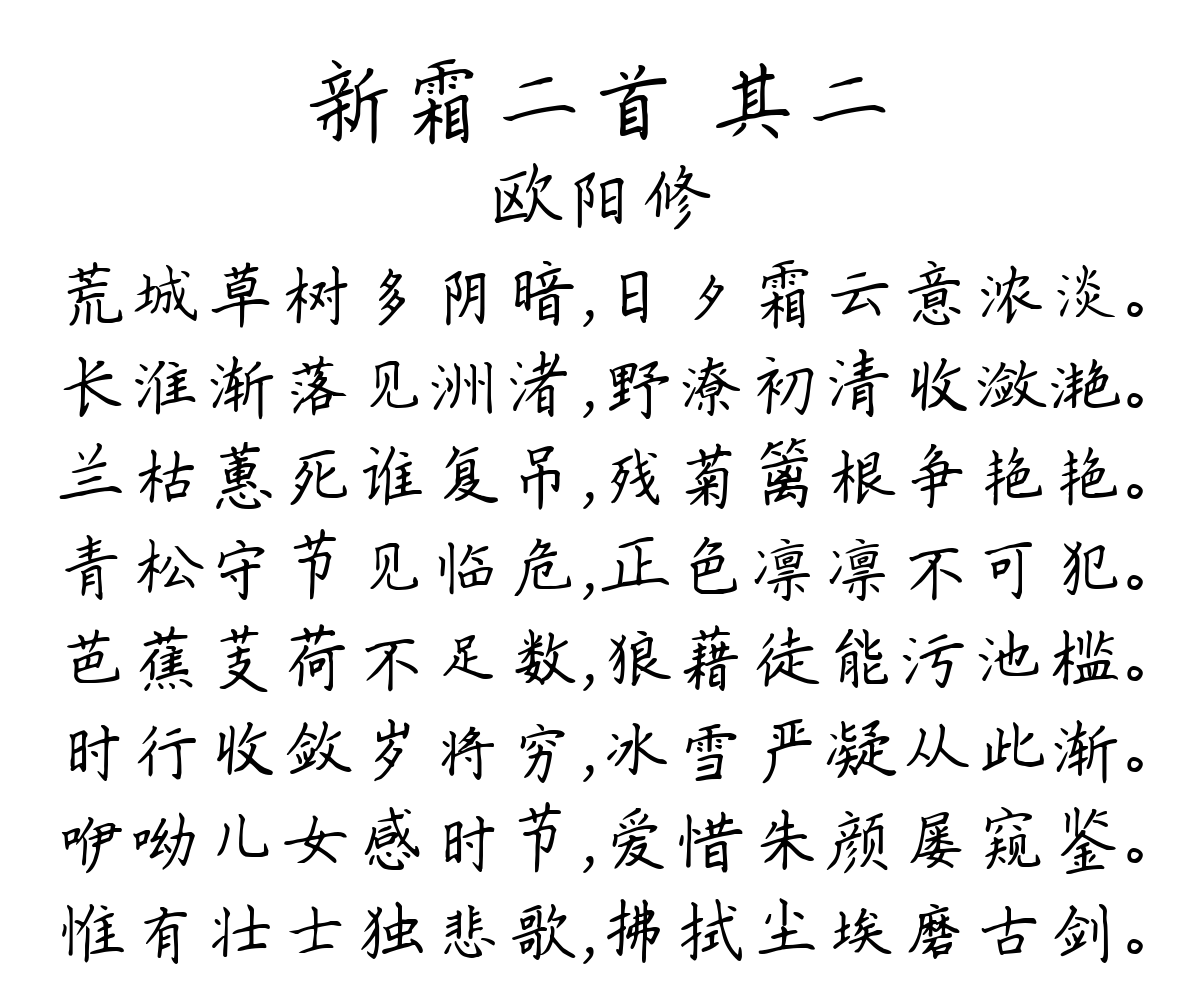 新霜二首 其二
欧阳修
荒城草树多阴暗,日夕霜云意浓淡。
长淮渐落见洲渚,野潦初清收潋滟。
兰枯蕙死谁复吊,残菊篱根争艳艳。
青松守节见临危,正色凛凛不可犯。
芭蕉芰荷不足数,狼藉徒能污池槛。
时行收敛岁将穷,冰雪严凝从此渐。
咿呦儿女感时节,爱惜朱颜屡窥鉴。
惟有壮士独悲歌,拂拭尘埃磨古剑。